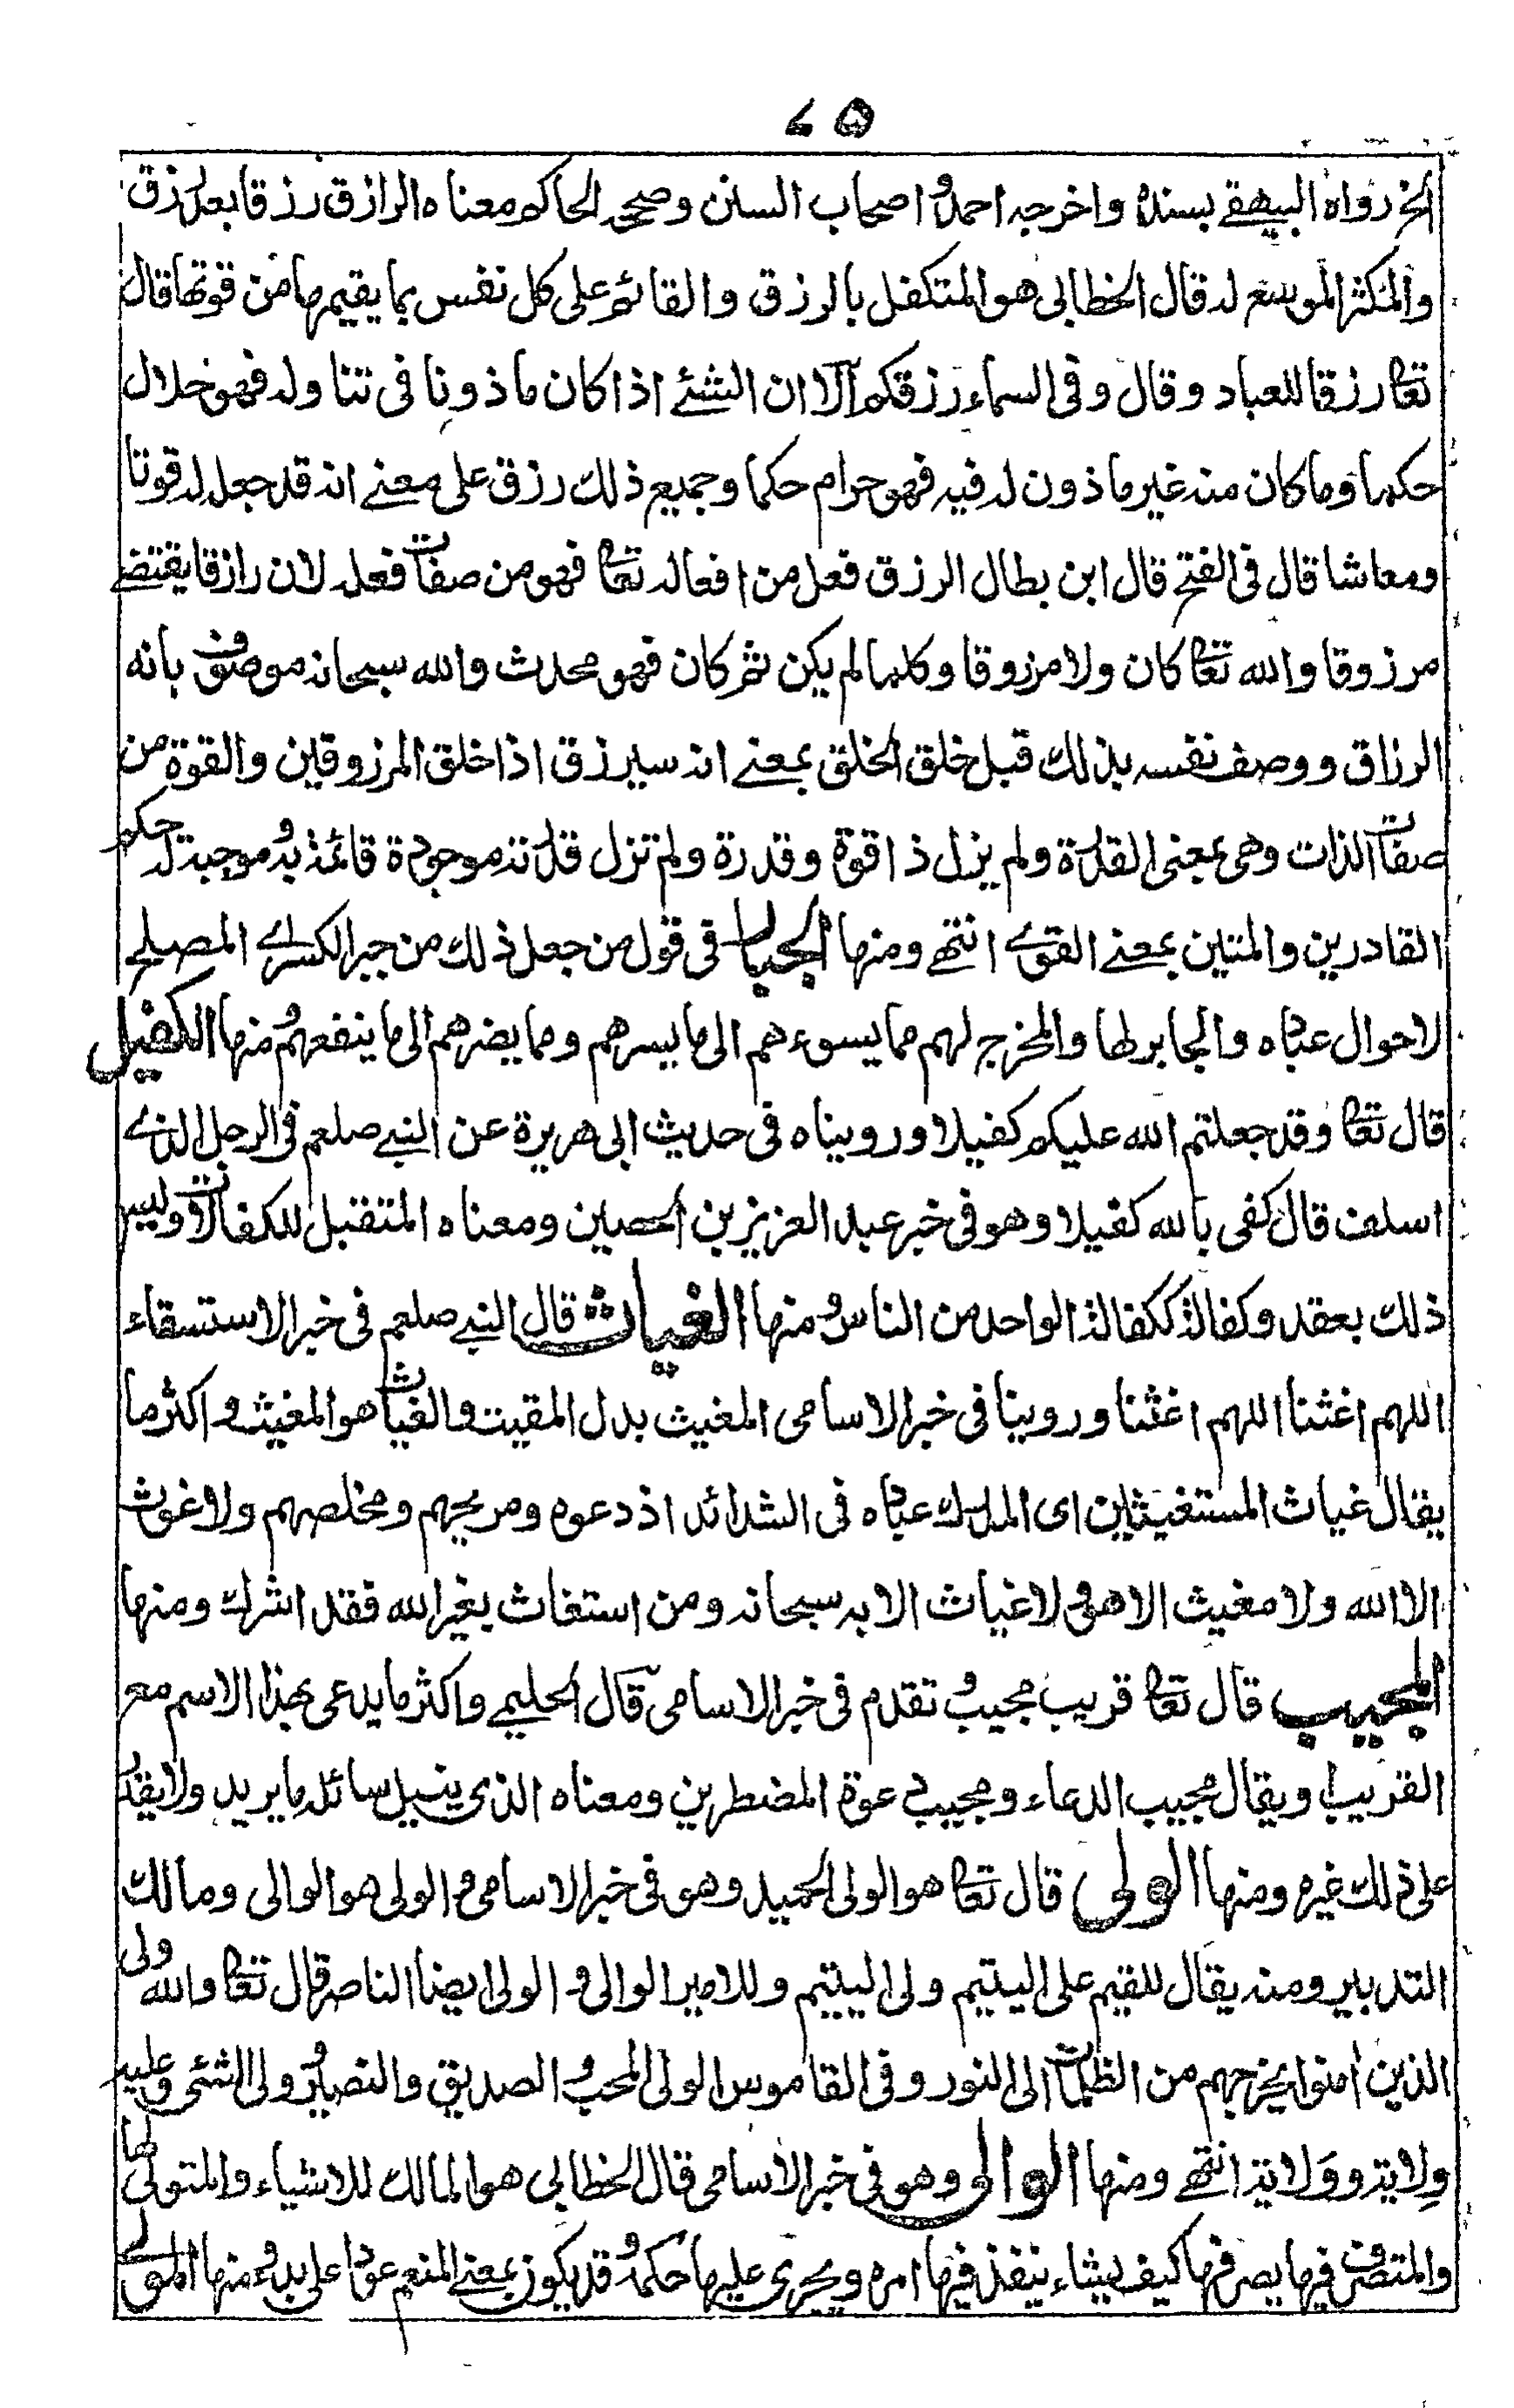 ٤٥
الخ رواه البيهقے بسنده واخرجه احمد و اصحاب السنن وصححه الحاكم معناه الرازق رزقا بعد رزق
والمكثر الموسع له قال الخطابى هو المتكفل بالرزق والقائم على كل نفس بما يقيمها من قوتها قال
تعا رزقا للعباد وقال وفى السماء رزقكم الا ان الشئے اذا كان ماذونا فى تناوله فهو حلال
حكما وما كان منه غير ماذون له فيه فهو حرام حكما وجميع ذلك رزق على معنے انه قد جعل له قوتا
ومعاشا قال فى الفتح قال ابن بطال الرزق فعل من افعاله تعا فهو من صفات فعله لان رازقا يقتضے
مرزوقا والله تعا كان ولا مرزوقا وكلما لم يكن ثم كان فهو محدث والله سبحانه موصوف بانه
الرزاق ووصف نفسه بذلك قبل خلق الخلق بمعنے انه سيرزق اذا خلق المرزوقين والقوة من
صفات الذات وهى بمعنى القدرة ولم يزل ذا قوة وقدرة ولم تزل قدرته موجودة قائمة به موجبة له حكم
القادرين والمتين بمعنے القوے انتهے ومنها الجبار فى قول من جعل ذلك من جبر الكسراے المصلح
لاحوال عباده والجابر لها والمخرج لهم مما يسوءهم الى ما يسرهم ومما يضرهم الى ما ينفعهم و منها الكفيل
قال تعا وقد جعلتم الله عليكم كفيلا وروبيناه فى حديث ابى هريرة عن النبے صلعم فى الرجل الذے
اسلف قال كفى بالله كفيلا وهو فى خبر عبد العزيز بن الحصين ومعناه المتقبل للكفالات وليس
ذلك بعقد وكفالة ككفالة الواحد من الناس و منها الغياث قال النبے صلعم فى خبر الاستسقاء
اللهم اغثنا اللهم اغثنا وروينا فى خبر الاسامى المغيث بدل المقيت والغياث هو المغيث واكثر ما
يقال غياث المستغيثين اى المدرك عباده فى الشدائد اذ دعوه ومريحهم ومخلصهم ولا غوث
الا الله ولا مغيث الا هو ولا غياث الا به سبحانه ومن استغاث بغير الله فقد اشرك ومنها
المجيب قال تعا قريب مجيب و تقدم فى خبر الاسامى قال الحليمے واكثر ما يدعى بهذا الاسم مع
القريب ويقال مجيب الدعاء ومجيب دعوة المضطرين ومعناه الذى ينيل سائله ما يريد ولا يقدر
على ذلك غيره ومنها الولى قال تعا هو الولى الحميد وهو فى خبر الاسامى و الولى هو الوالى ومالك
التدبير ومنه يقال للقيم على اليتيم ولى اليتيم وللامير الوالى و الولى ايضا الناصر قال تعا والله ولى
الذين امنوا يخرجهم من الظلمات الى النور وفى القاموس الولى المحب و الصديق والنصير و ولى الشئى وعليه
وِلاية ووَلاية انتهے ومنها الوالى وهو فى خبر الاسامى قال الخطابى هو المالك للاشياء والمتولى لها
والمتصرف فيها يصرفها كيف يشاء ينفذ فيها امره ويجرى عليها حكمه و قد يكون بمعنے المنعم عودا على بدء و منها المولى